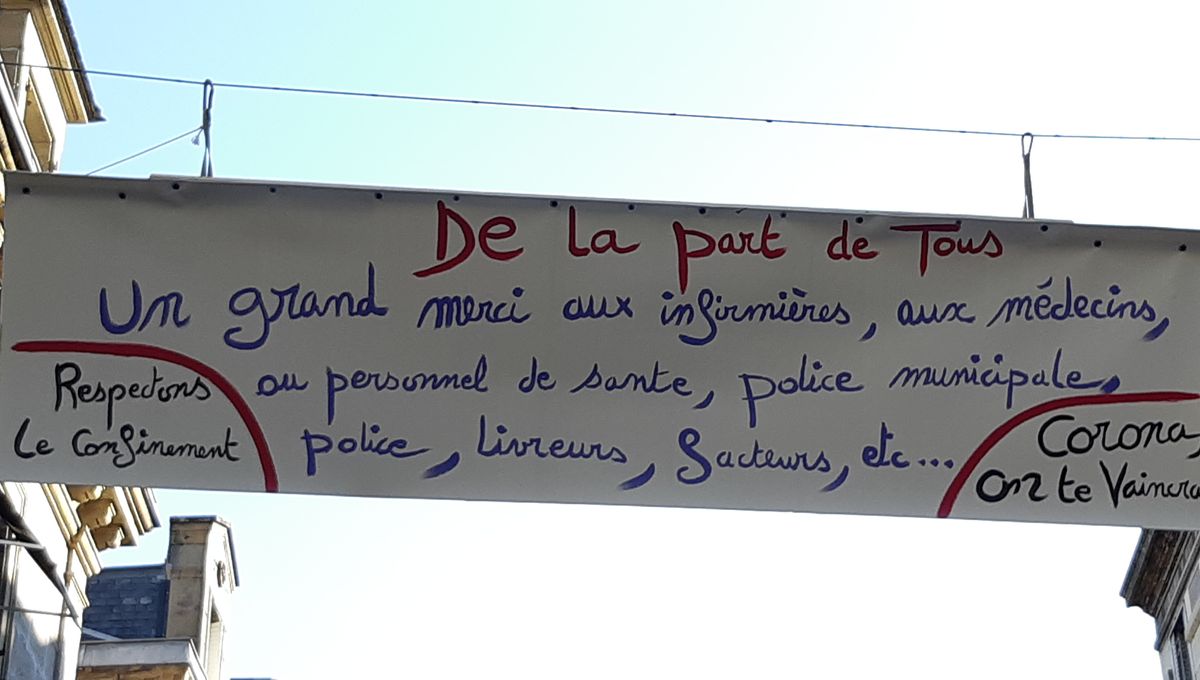 De la part de Tous
Un grand merci aux infirmières, aux médecins,
au personnel de sante, police municipale,
police, livreurs, facteurs, etc...
Respectons
Le Confinement
Corona,
On te Vaincra